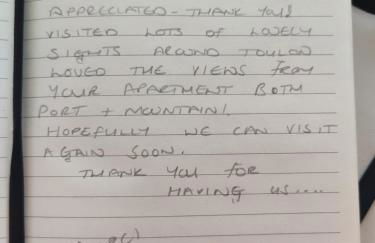 APPRECIATED - THANK YOU!
VISITED LOTS OF LOVELY
SIGHTS AROUND TOULON
LOVED THE VIEWS FROM
YOUR APARTMENT BOTH
PORT + MOUNTAIN!
HOPEFULLY WE CAN VISIT
AGAIN SOON.
THANK YOU FOR
HAVING US....